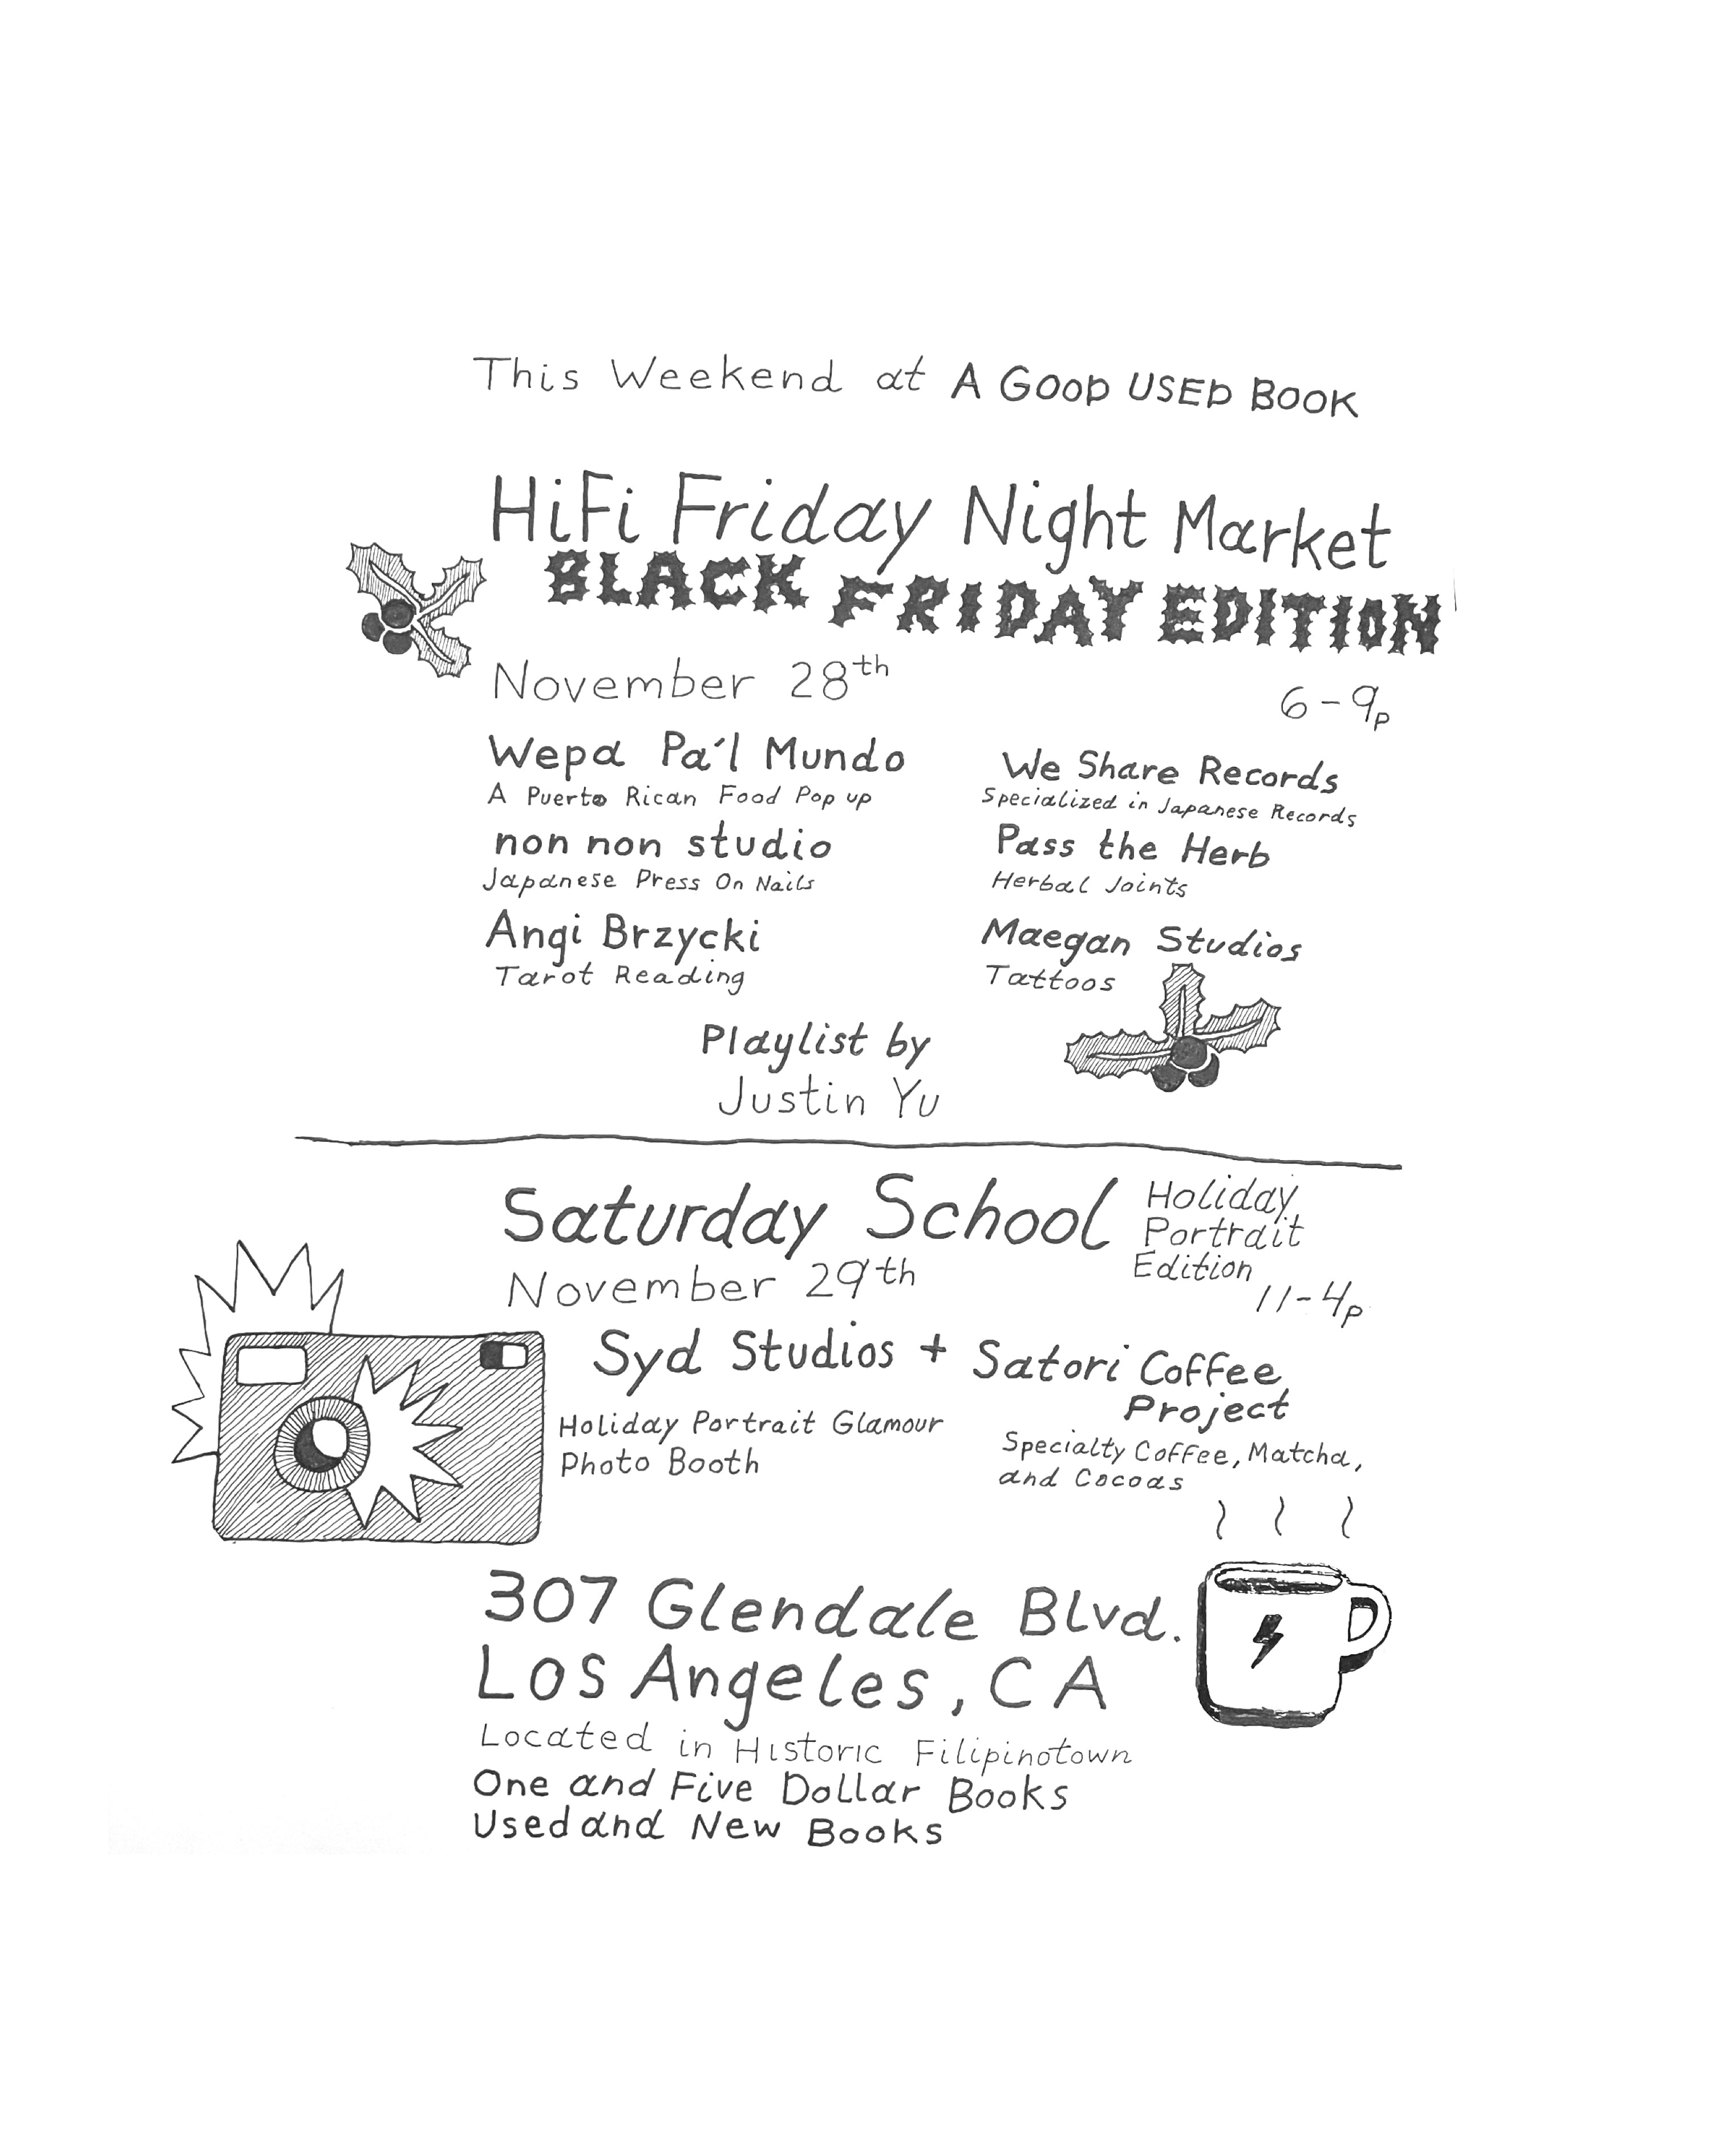 This Weekend at A GOOD USED BOOK
HiFi Friday Night Market
BLACK FRIDAY EDITION
November 28th
6-9p
Wepa Pa'l Mundo
A Puerto Rican Food Pop up
non non studio
Japanese Press On Nails
Angi Brzycki
Tarot Reading
We Share Records
Specialized in Japanese Records
Pass the Herb
Herbal Joints
Maegan Studios
Tattoos
Playlist by
Justin Yu
Saturday School
Holiday
Portrait
Edition
November 29th
11-4p
Syd Studios +
Holiday Portrait Glamour
Photo Booth
Satori Coffee
Project
Specialty Coffee, Matcha,
and Cocoas
307 Glendale Blvd.
Los Angeles, CA
Located in Historic Filipinotown
One and Five Dollar Books
Used and New Books